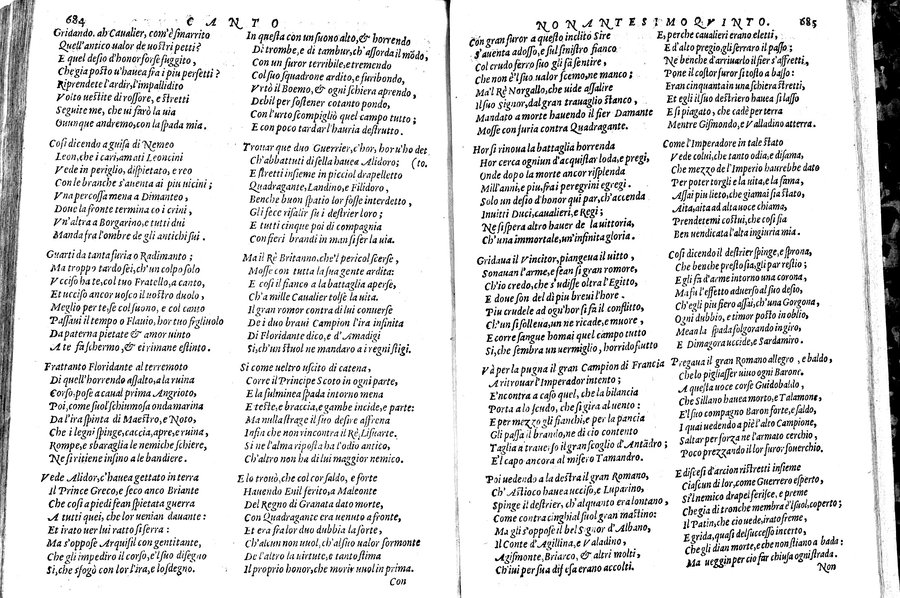 684 CANTO
Gridando. ah Caualier, com'è smarrito
Quell'antico ualor de uostri petti?
E quel desio d'honor forse fuggito,
Che gia posto u'hauea fra i piu perfetti?
Riprendete l'ardir, l'impallidito
Volto uestite di rossore, e stretti
Seguite me, che ui farò la uia
Ouunque andremo, con la spada mia.
Cosi dicendo a guisa di Nemeo
Leon, che i cari, amati Leoncini
Vede in periglio, dispietato, e reo
Con le branche s'auenta ai piu uicini;
Vna percossa mena a Dimanteo,
Doue la fronte termina co i crini,
Vn'altra a Borgarino, e tutti dui
Manda fra l'ombre de gli antichi sui.
Guarti da tanta furia o Radimanto;
Ma troppo tardo sei, ch'un colpo solo
Vccise ha te, col tuo Fratello, a canto,
Et uccise ancor uosco il uostro duolo,
Meglio per te, se col suono, e col canto
Passaui il tempo o Flauio, hor tuo figliuolo
Da paterna pietate & amor uinto
A te fa schermo, & ei rimane estinto.
Frattanto Floridante al terremoto
Di quell'horrendo assalto, a la ruina
Corso, pose a caual prima Angrioto,
Poi, come suol schiumosa onda marina
Da l'ira spinta di Maestro, e Noto,
Che i legni spinge, caccia, apre, e ruina,
Rompe, e sbaraglia le nemiche schiere,
Ne si ritiene insino a le bandiere.
Vede Alidor, c'hauea gettato in terra
Il Prince Greco, e seco anco Briante
Che così a piedi fean spietata guerra
A tutti quei, che lor uenian dauante:
Et irato uer lui ratto si serra:
Ma s'oppose Arquisil con gentitante,
Che gli impediro il corso, e'l suo disegno
Si, che sfogò con lor l'ira, e lo sdegno.
In questa con un suono alto, & horrendo
Di trombe, e di tambur, ch'afforda il mōdo,
Con un furor terribile, e tremendo
Col suo squadrone ardito, e furibondo,
Vrtò il Boemo, & ogni schiera aprendo,
Debil per sostener cotanto pondo,
Con l'urto scompigliò quel campo tutto;
E con poco tardar l'hauria destrutto.
Trouar que duo Guerrier, c'hor, hor u'ho det
Ch'abbattuti di sella hauea Alidoro; (to.
E stretti insieme in picciol drapelletto
Quadragante, Landino, e Filidoro,
Benche buon spatio lor fosse interdetto,
Gli fece risalir su i destrier loro;
E tutti cinque poi di compagnia
Con fieri brandi in man si fer la uia.
Ma il Rè Britanno, che'l pericol scerse,
Mosse con tutta la sua gente ardita:
E cosi il fianco a la battaglia aperse,
Ch'a mille Caualier tolse la uita.
Il gran romor contra di lui conuerse
De i duo braui Campion l'ira infinita
Di Floridante dico, e d'Amadigi
Si, ch'un stuol ne mandaro a i regni stigi.
Si come ueltro uscito di catena,
Corre il Principe Scoto in ogni parte,
E la fulminea spada intorno mena
E teste, e braccia, e gambe incide, e parte:
Ma nulla strage il suo desire affrena
Infin che non rincontra il Rè Lisuarte.
Si ne l'alma riposta ha l'odio antico,
Ch'altro non ha di lui maggior nemico.
E lo trouò, che col cor saldo, e forte
Hauendo Enil ferito, a Maleonte
Del Regno di Granata dato morte,
Con Quadragante era uenuto a fronte,
Et era fra lor duo dubbia la sorte,
Ch'alcun non uuol, ch'al suo ualor sormonte
De l'altro la uirtute, e tanto stima
Il proprio honor, che morir uuol prima.
Con
NONANTESIMOQVINTO. 685
Con gran furor a questo inclito Sire
S'auenta adosso, e sul sinistro fianco
Col crudo ferro suo gli fa sentire,
Che non è'l suo ualor scemo, ne manco;
Ma'l Rè Norgallo, che uide assalire
Il suo Signor, dal gran trauaglio stanco,
Mandato a morte hauendo il fier Damante
Mosse con furia contra Quadragante.
Hor si rinoua la battaglia horrenda
Hor cerca ogniun d'acquistar loda, e pregi,
Onde dopo la morte ancor risplenda
Mill'anni, e piu, fra i peregrini egregi.
Solo un desio d'honor qui par, ch'accenda
Inuitti Duci, caualieri, e Regi;
Ne si spera altro hauer de la uittoria,
Ch'una immortale, un'infinita gloria.
Gridaua il Vincitor, piangeua il uitto,
Sonauan l'arme, e sean si gran romore,
Ch'io credo, che s'udisse oltra l'Egitto,
E doue son del dì piu breui l'hore.
Piu crudele ad ogn'hor si fa il conflitto,
Ch'un si solleua, un ne ricade, e muore,
E corre sangue homai quel campo tutto
Si, che sembra un uermiglio, horrido flutto
Và per la pugna il gran Campion di Francia
A ritrouar l'Imperador intento;
E'ncontra a caso quel, che la bilancia
Porta a lo scudo, che si gira al uento:
E per mezzo gli fianchi, e per la pancia
Gli passa il brando, ne di cio contento
Taglia a trauerso il gran Scoglio d'Antādro;
E'l capo ancor al misero Tamandro.
Poi uedendo a la destra il gran Romano,
Ch'Astioco hauea ucciso, e Luparino,
Spinge il destrier, ch'alquanto era lontano,
Come contra cinghial suol gran mastino:
Ma gli s'oppose il bel Signor d'Albano,
Il Conte d'Agillina, e Valadino,
Agismonte, Briarco, & altri molti,
Ch'iui per sua difesa erano accolti.
E, perche caualieri erano eletti,
E d'alto pregio, gli serraro il passo;
Ne benche d'arriuarlo il fier s'affretti,
Pone il costor furor si tosto a basso:
Eran cinquanta in una schiera stretti,
Et egli il suo destriero hauea si lasso
E si piagato, che cadè per terra
Mentre Gismondo, e Valladino atterra.
Come l'Imperadore in tale stato
Vede colui, che tanto odia, e disama,
Che mezzo de l'Imperio haurebbe dato
Per poter torgli e la uita, e la fama,
Assai piu lieto, che giamai sia stato,
Aita, aita ad alta uoce chiama,
Prendetemi costui, che così sia
Ben uendicata l'alta ingiuria mia.
Cosi dicendo il destrier spinge, e sprona,
Che benche presto sia, gli par restio;
E gli fa d'arme intorno una corona,
Ma fu l'effetto aduerso al suo desio,
Ch'egli piu fiero assai, ch'una Gorgona,
Ogni dubbio, e timor posto in oblio,
Mena la spada folgorando in giro,
E Dimagora uccide, e Sardamiro.
Pregaua il gran Romano allegro, e baldo,
Che lo pigliasser uiuo ogni Barone.
A questa uoce corse Guidobaldo,
Che Sillano hauea morto, e Talamone,
E'l suo compagno Baron forte, e saldo,
I quai uedendo a piè l'alto Campione,
Saltar per forza ne l'armato cerchio,
Poco prezzando il lor furor souerchio.
E discesi d'arcion ristretti insieme
Ciascun di lor, come Guerrero esperto,
Si'l nemico drapel ferisce, e preme
Che gia di tronche membra è'l suol, coperto;
Il Patin, che cio uede, irato freme,
E grida, quasi del successo incerto,
Che gli dian morte, e che non stiano a bada:
Ma ueggin per cio far chiusa ogni strada.
Non